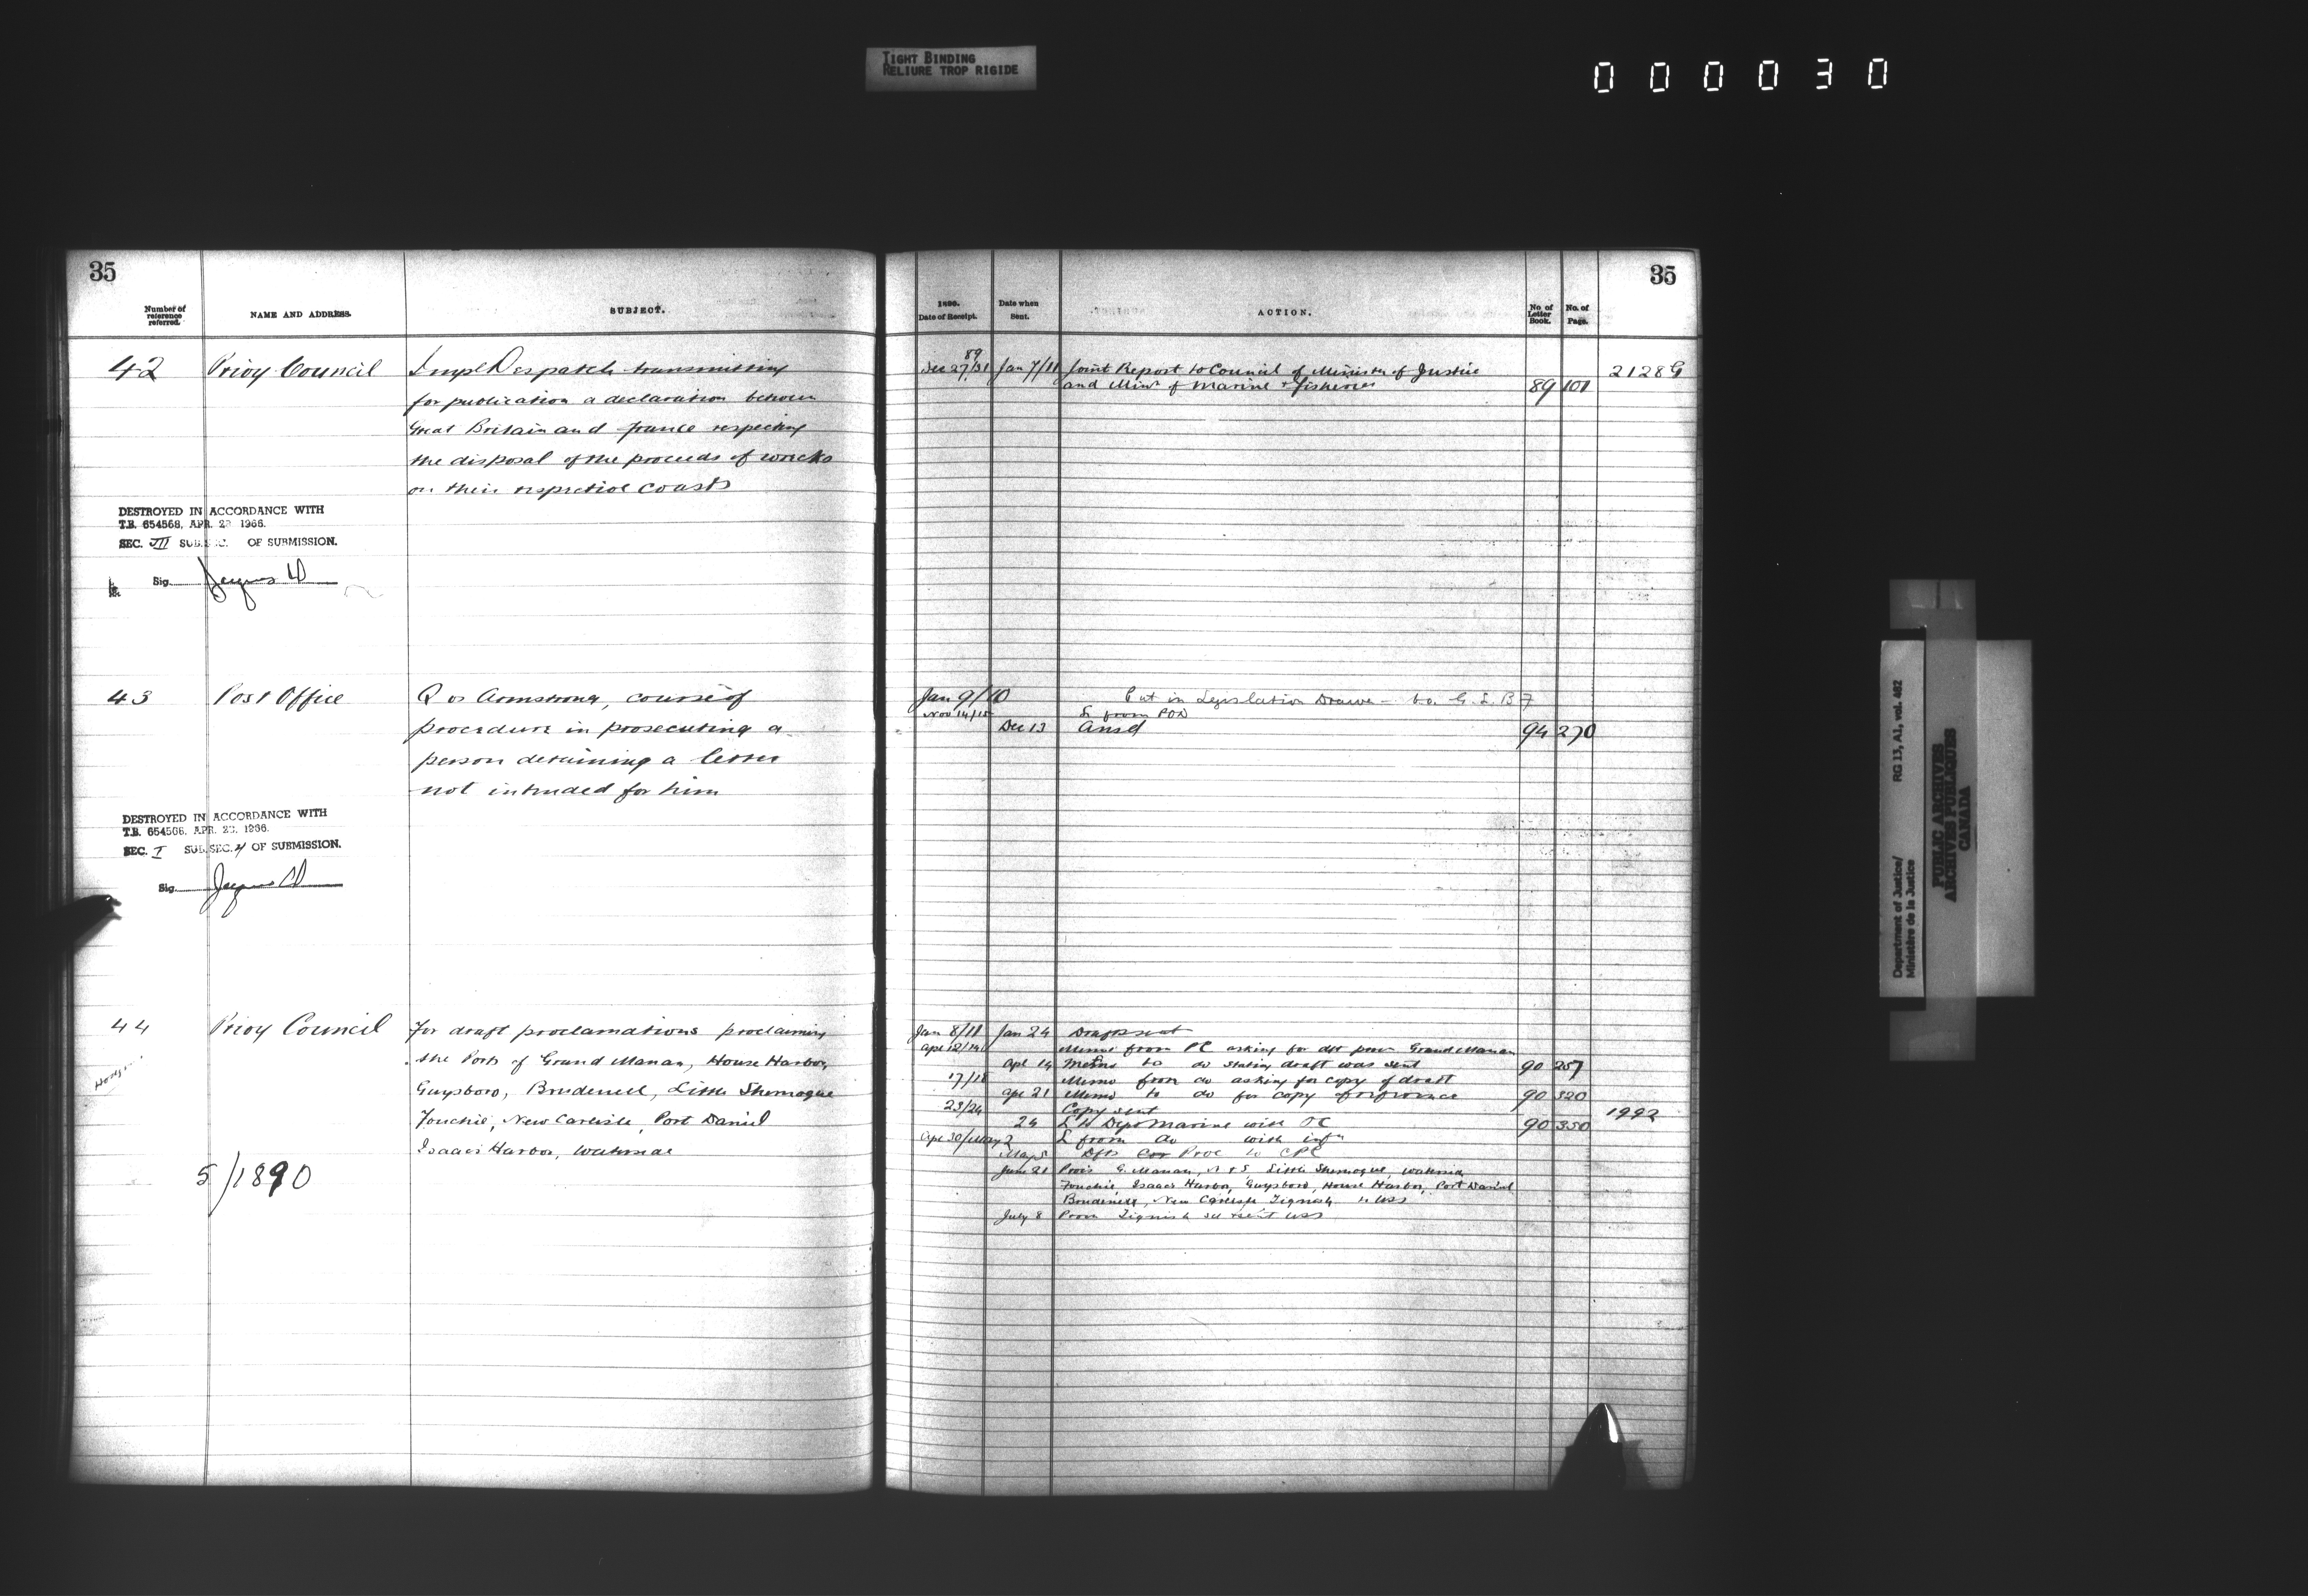 TIGHT BINDING
RELIURE TROP RIGIDE
000030
35
Number of reference referred.
NAME AND ADDRESS.
SUBJECT.
42
Privy Council
Impl Despatch transmitting
for publication a declaration between
Great Britain and France respecting
the disposal of the proceeds of wrecks
on their respective coasts
DESTROYED IN ACCORDANCE WITH
T.B. 654568, APR. 22 1966.
SEC. VII SUB.SEC. OF SUBMISSION.
Sig.
43
Post Office
Q vs Armstrong, course of
procedure in prosecuting a
person detaining a letter
not intended for him
DESTROYED IN ACCORDANCE WITH
T.B. 654566, APR. 22, 1966.
SEC. I SUB.SEC. 4 OF SUBMISSION.
Sig.
44
Privy Council
For draft proclamations proclaiming
the Ports of Grand Manan, House Harbor,
Guysboro, Brudenell, Little Shemogue
Fouchie, New Carlisle, Port Daniel
Isaacs Harbor, Waterside
5/1890
35
1890.
Date of Receipt.
Date when Sent.
ACTION.
No. of Letter Book.
No. of Page.
89
Dec 27/31 Jan 7/11 Joint Report to Council of Minister of Justice
and Minr of Marine & Fisheries 89 101
2128G
Jan 9/10 Put in Legislation Drawer
Nov 14/15 L from POD
Dec 13 Ansd 94 270
Jan 8/11 Jan 24 Drafts sent
Apl 12/14 Memo from PC asking for dft procn Grand Manan
Apl 14 Memo to do stating draft was sent 90 257
17/18 Memo from do asking for copy of draft
Apl 21 Memo to do for copy of reference 90 320
23/24 Copy sent
24 L to Dept Marine with OC 90 350
1992
Apl 30/May 2 L from do with infn
May 5 Dfts Proc to CPC
June 21 Procs G. Manan, Little Shemogue, Waterside,
Fouchie Isaacs Harbor, Guysboro, House Harbor, Port Daniel
Brudenell, New Carlisle Tignish to USS
July 8 Procn Tignish sent USS
Department of Justice/
Ministère de la Justice
RG 13, A1, vol. 482
PUBLIC ARCHIVES
ARCHIVES PUBLIQUES
CANADA